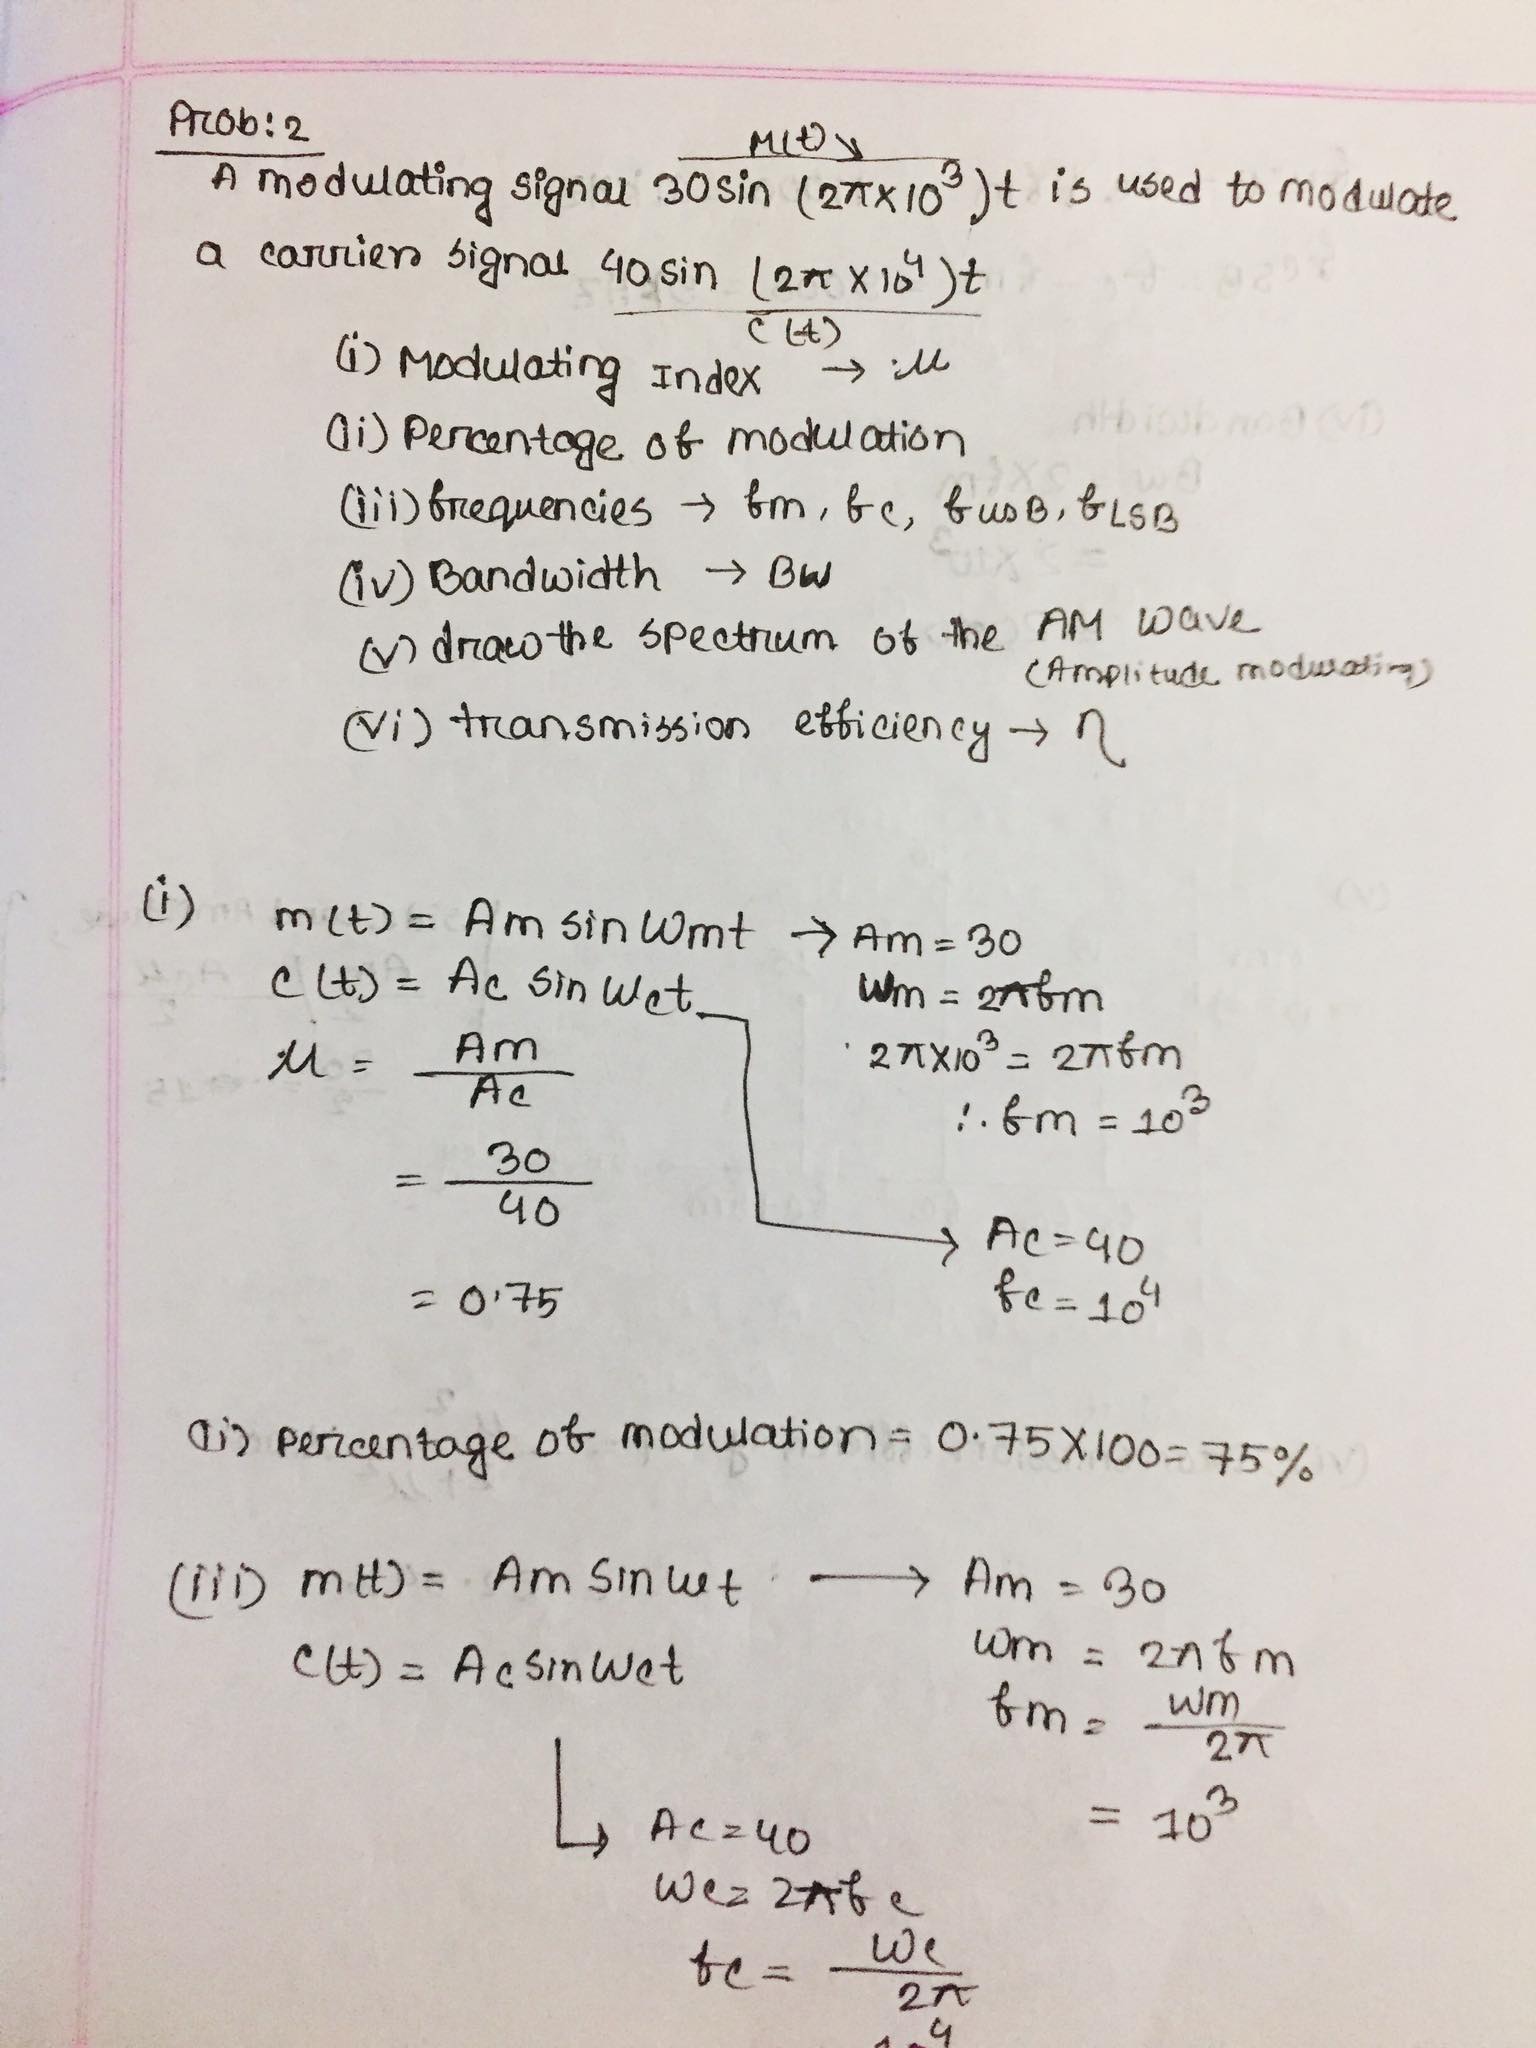 Prob:2
M(t)
A modulating signal 30 sin (2π×10³)t is used to modulate
a carrier signal 40 sin (2π×10⁴)t
c(t)
(i) Modulating Index → μ
(ii) Percentage of modulation
(iii) frequencies → fm, fc, fUSB, fLSB
(iv) Bandwidth → BW
(v) draw the spectrum of the AM wave
(Amplitude modulating)
(vi) transmission efficiency → η
(i) m(t) = Am sin Wmt → Am = 30
c(t) = Ac sin Wct
Wm = 2πfm
μ = Am/Ac
2π×10³ = 2πfm
∴ fm = 10³
= 30/40
→ Ac = 40
= 0.75
fc = 10⁴
(ii) percentage of modulation = 0.75×100 = 75%
(iii) m(t) = Am sin wt → Am = 30
c(t) = Ac sin Wct
Wm = 2πfm
fm = Wm/2π
= 10³
Ac = 40
Wc = 2πfc
fc = Wc/2π
10⁴